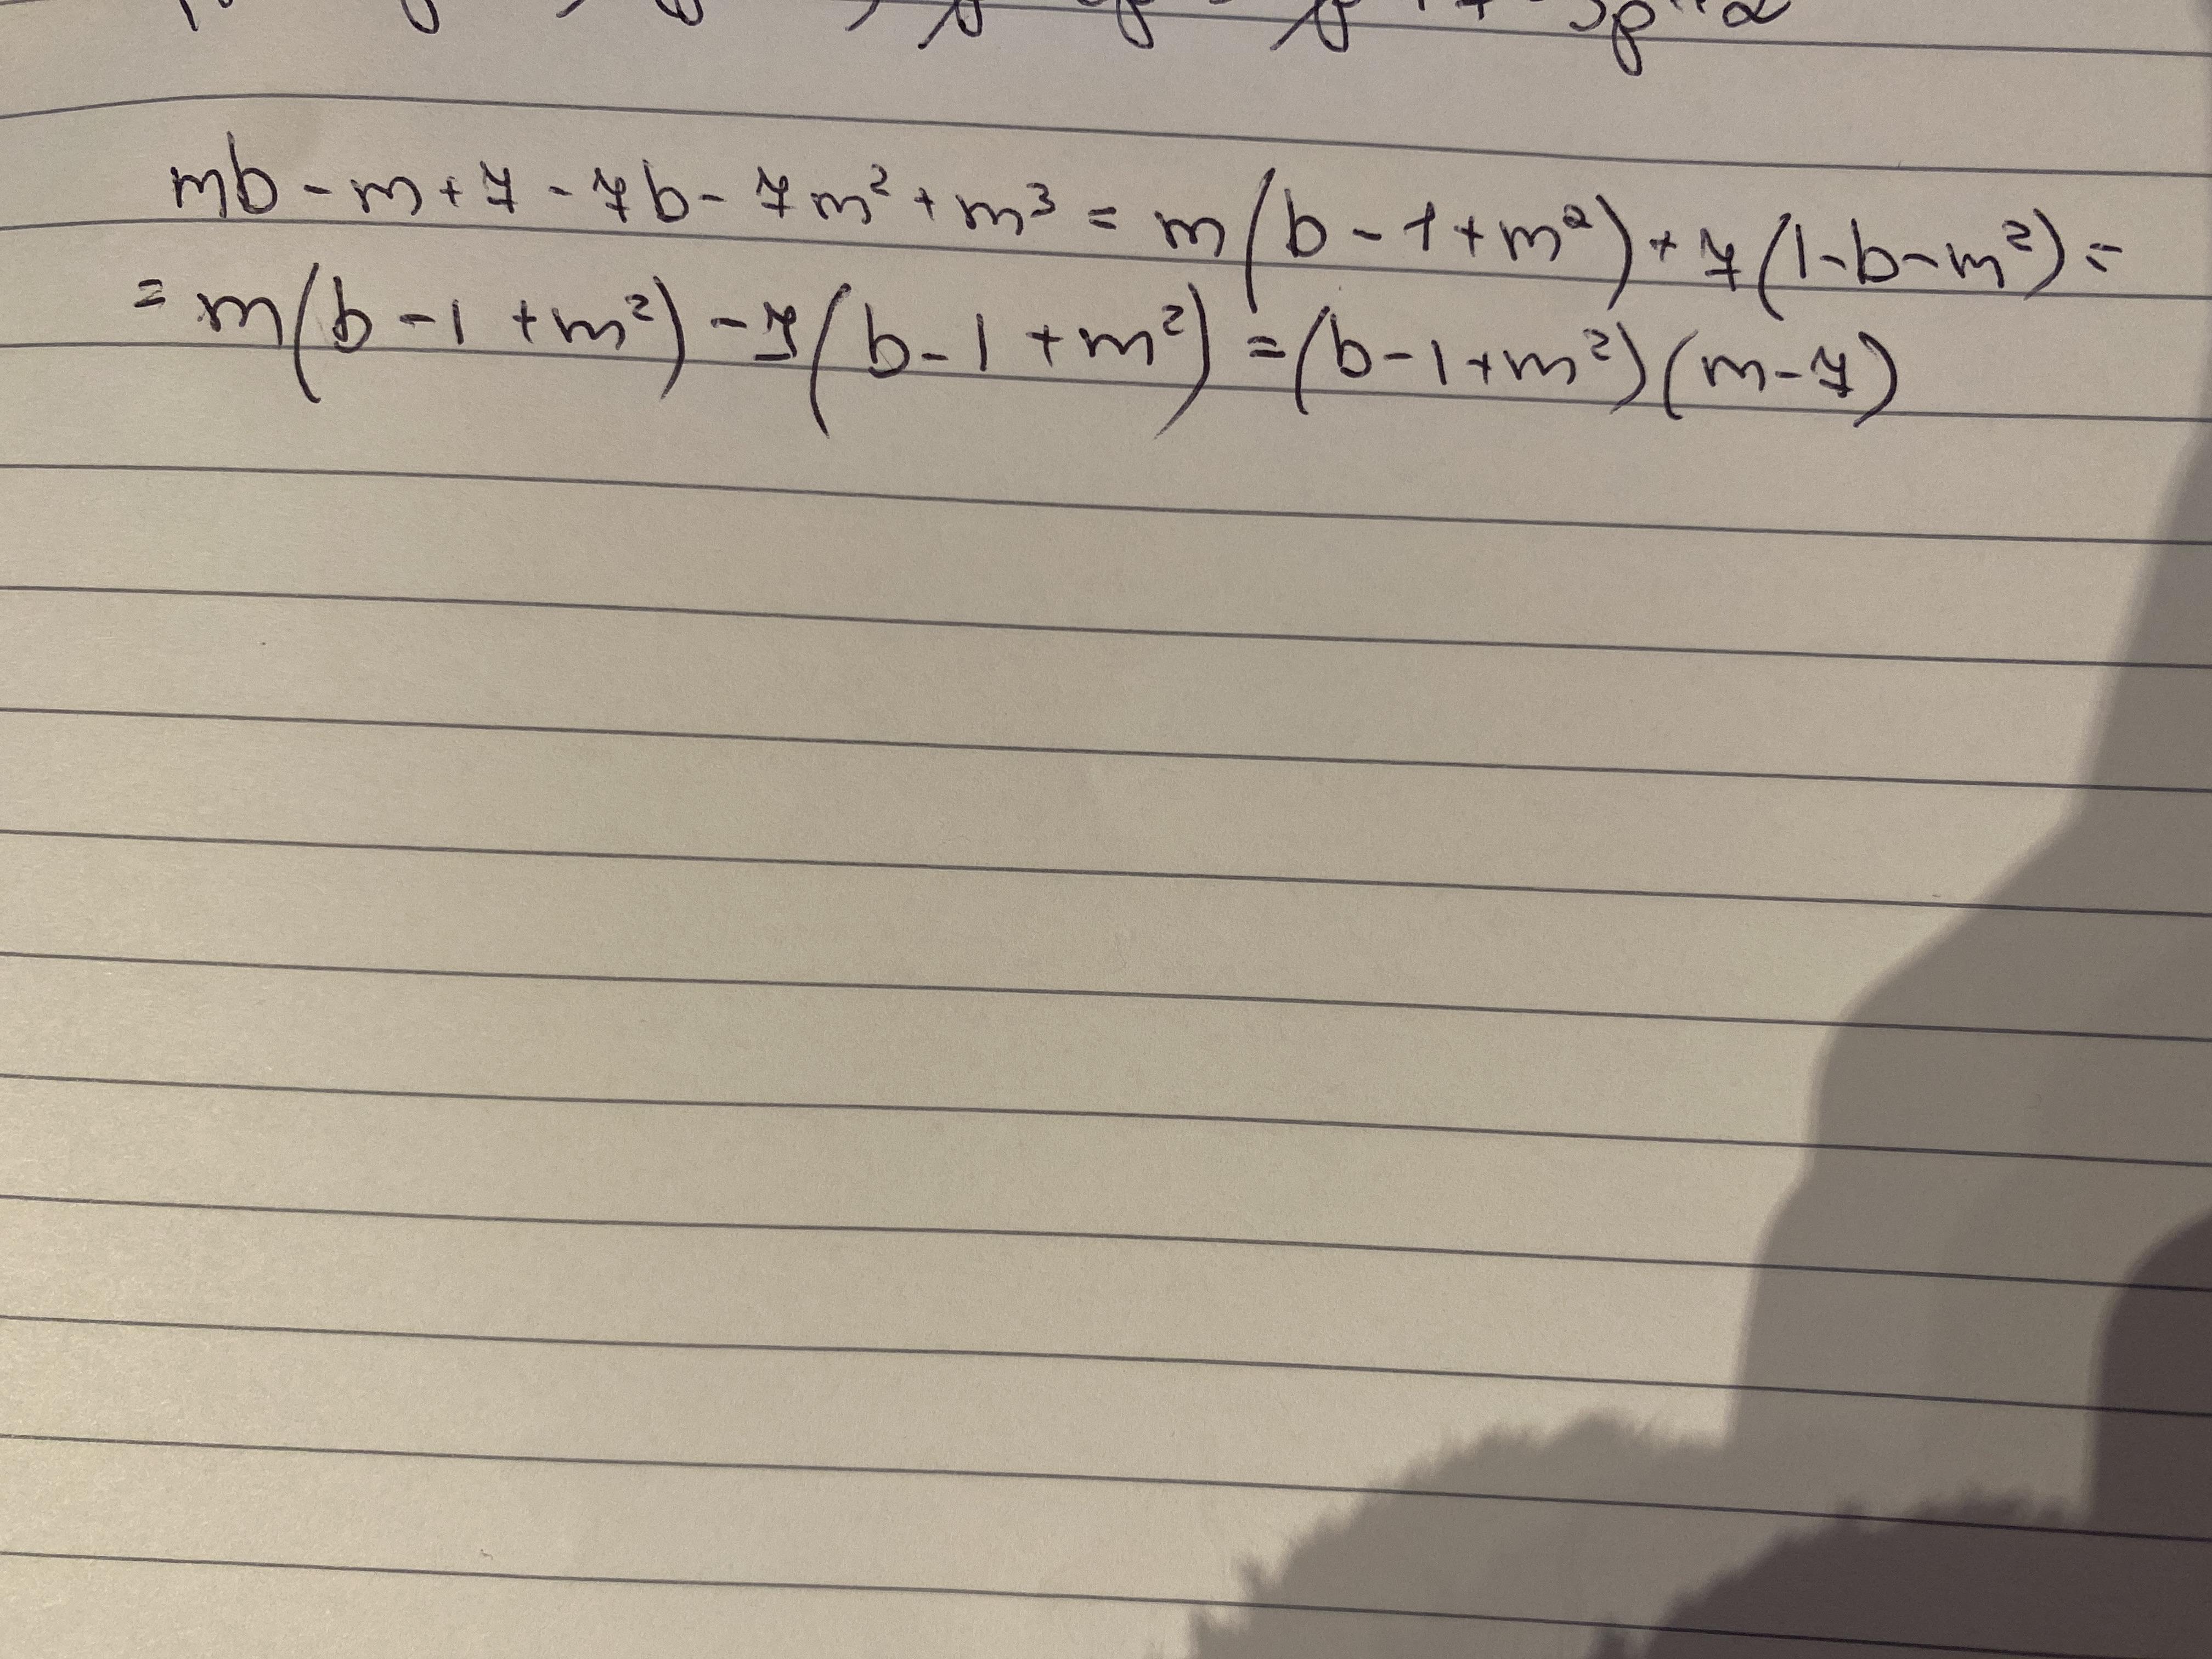 mb - m + 7 - 7b - 7m² + m³ = m(b - 1 + m²) + 7(1 - b - m²) =
= m(b - 1 + m²) - 7(b - 1 + m²) = (b - 1 + m²)(m - 7)